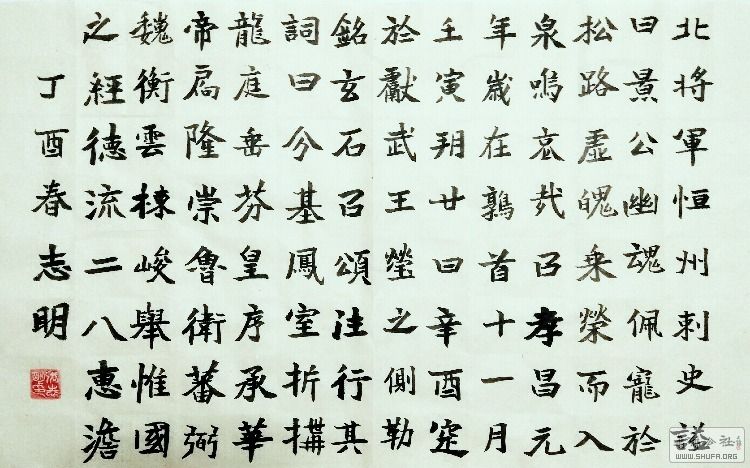 北將軍恒州刺史諡
曰景公幽魂佩寵於
松路虛魄乘榮而入
泉嗚哀哉㠯孝昌元
年歲在鶉首十一月
壬寅朔廿日辛酉窆
於獻武王瑩之側勒
銘玄石㠯頌注行其
詞曰兮基鳳室折搆
龍庭垂芬皇序承華
帝扃隆崇魯衛蕃弼
魏衡雲棟峻舉惟國
之經德流二八惠澹
丁酉春志明
WWW.SHUFA.ORG